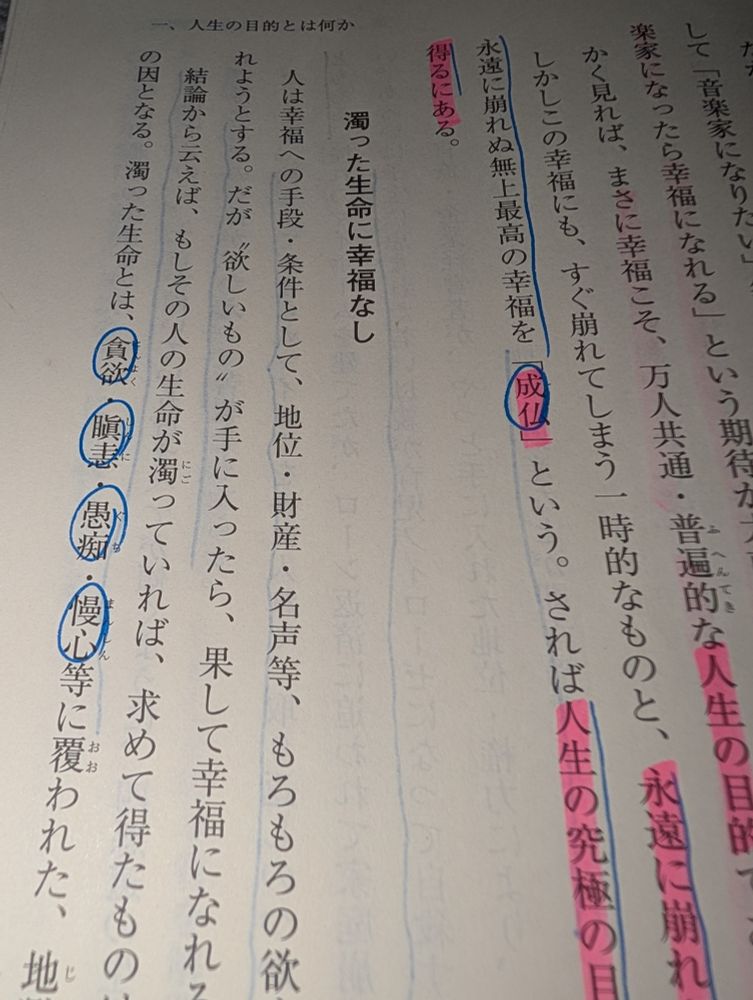 一、人生の目的とは何か
して「音楽家になりたい」
楽家になったら幸福になれる」という期待が
かく見れば、まさに幸福こそ、万人共通・普遍的な人生の目的で
しかしこの幸福にも、すぐ崩れてしまう一時的なものと、永遠に崩れ
永遠に崩れぬ無上最高の幸福を「成仏」という。されば人生の究極の目
得るにある。
濁った生命に幸福なし
人は幸福への手段・条件として、地位・財産・名声等、もろもろの欲
れようとする。だが〝欲しいもの〟が手に入ったら、果して幸福になれる
結論から云えば、もしその人の生命が濁っていれば、求めて得たもの
の因となる。濁った生命とは、貪欲・瞋恚・愚痴・慢心等に覆われた、地